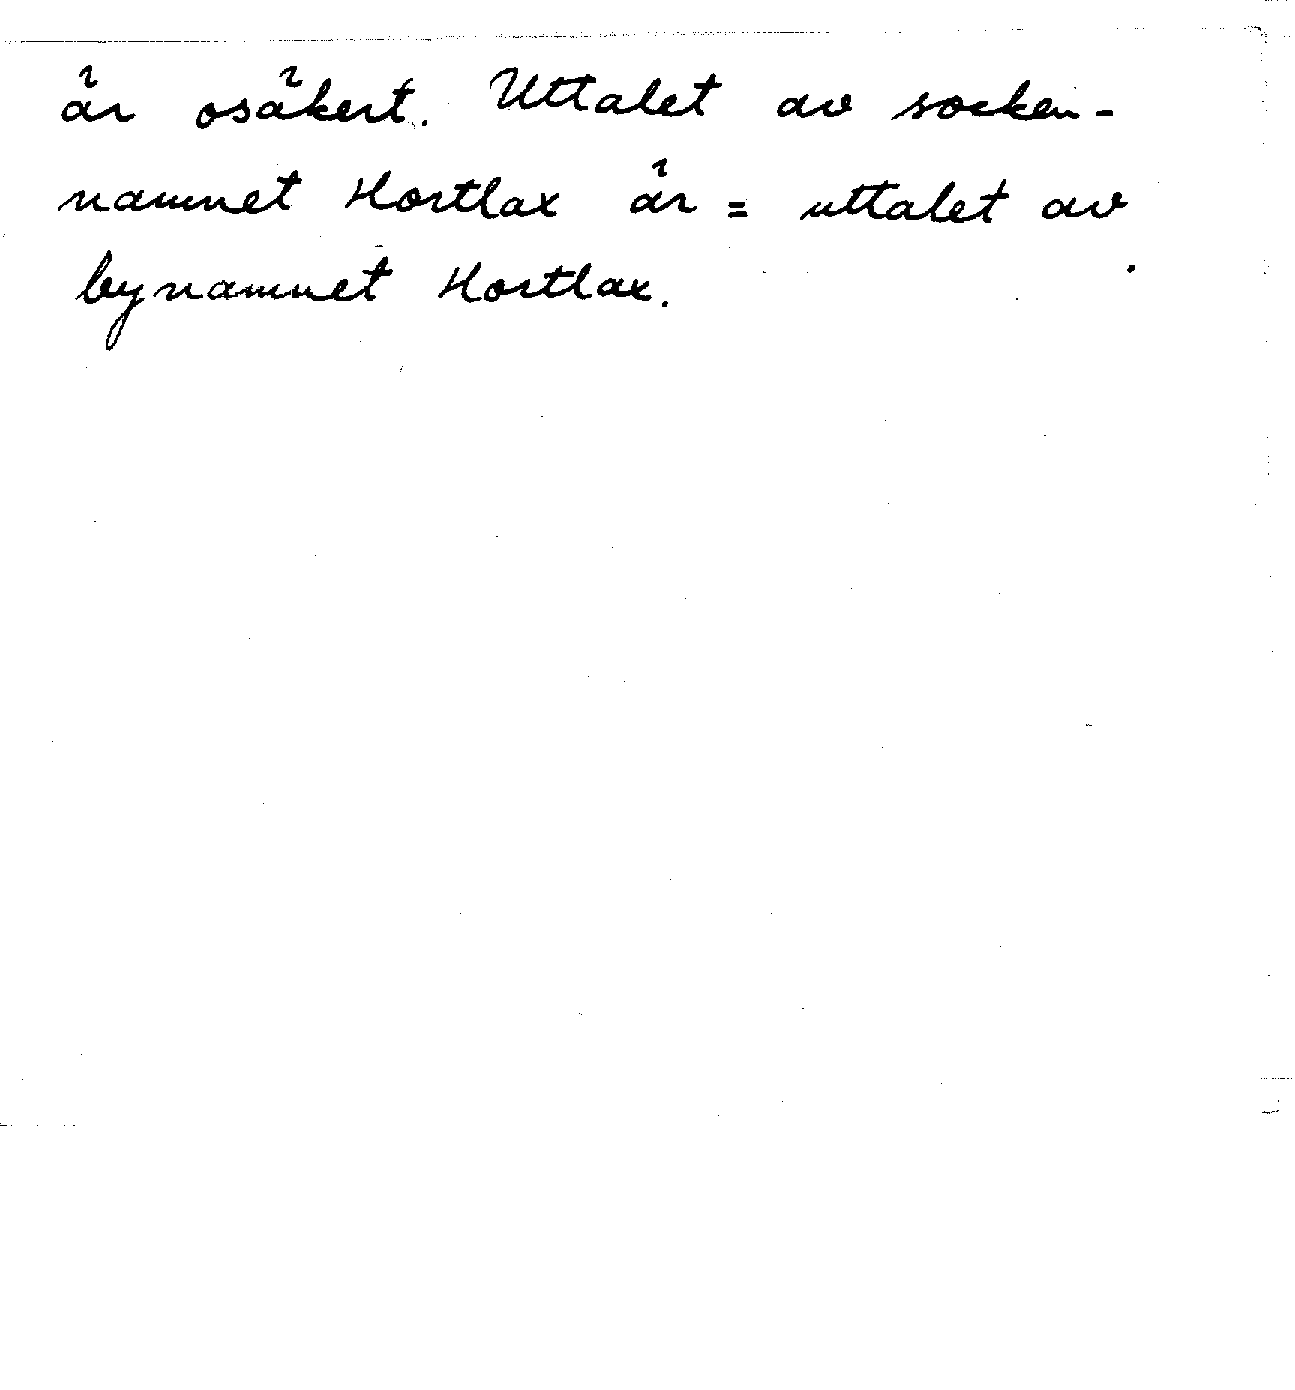 är osäkert. Uttalet av socken-
namnet Hortlax är = uttalet av
bynamnet Hortlax.